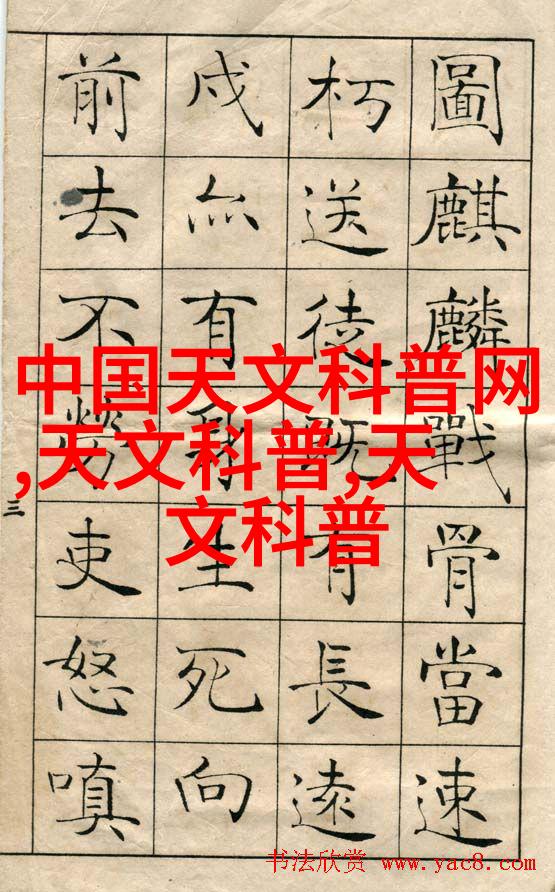 圖麒麟戰骨當速
朽送徒既有長遠
戍亦有身生死向
前去不勞吏怒嗔
三
中国天文科普网
,天文科普,天
文科普
书法欣赏 www.yac8.com